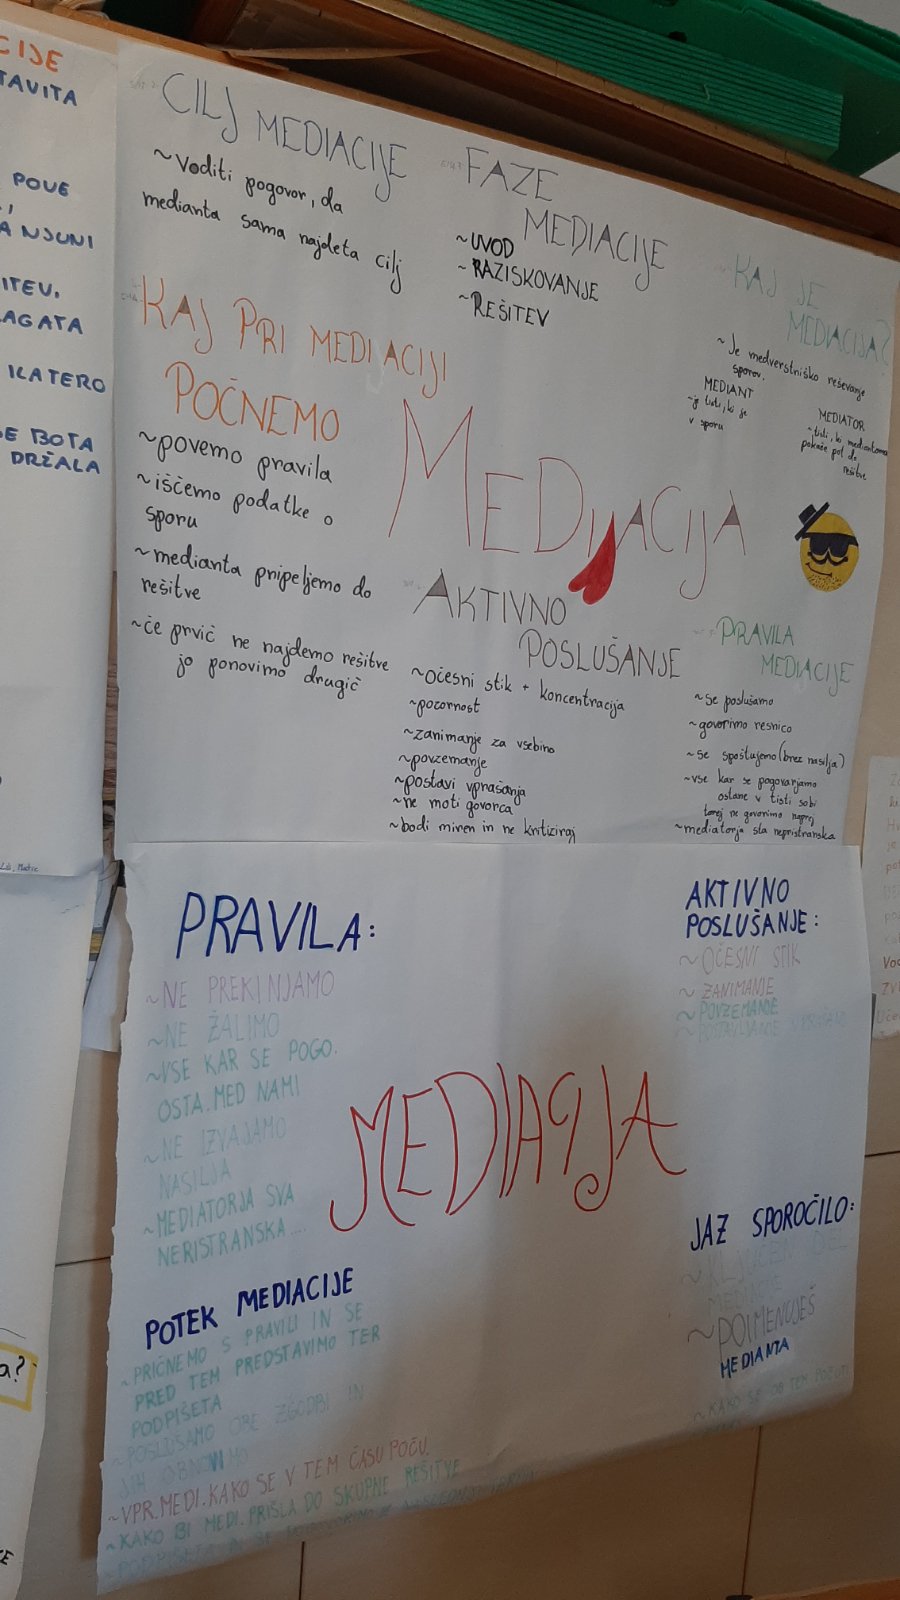 CIJE
TAVITA
POVE
A NJUNI
ITEV.
AGATA
KATERO
BOTA
DRŽALA
CILJ MEDIACIJE
~Voditi pogovor, da
medianta sama najdeta cilj
FAZE
MEDIACIJE
~UVOD
~RAZISKOVANJE
~REŠITEV
KAJ JE
MEDIACIJA?
~Je medvrstniško reševanje
sporov.
MEDIANT
~je tisti, ki je
v sporu
MEDIATOR
~tisti, ki mediantoma
pokaže pot do
rešitve
KAJ PRI MEDIACIJI
POČNEMO
~povemo pravila
~iščemo podatke o
sporu
~medianta pripeljemo do
rešitve
~če prvič ne najdemo rešitve
jo ponovimo drugič
MEDIJACIJA
AKTIVNO
POSLUŠANJE
~očesni stik + koncentracija
~pozornost
~zanimanje za vsebino
~povzemanje
~postavi vprašanja
~ne moti govorca
~bodi miren in ne kritiziraj
PRAVILA
MEDIACIJE
~se poslušamo
~govorimo resnico
~se spoštujemo (brez nasilja)
~vse kar se pogovarjamo
ostane v tisti sobi
torej ne govorimo naprej
~mediatorja sta nepristranska
PRAVILA:
~NE PREKINJAMO
~NE ŽALIMO
~VSE KAR SE POGO.
OSTA. MED NAMI
~NE IZVAJAMO
NASILJA
~MEDIATORJA SVA
NERISTRANSKA...
AKTIVNO
POSLUŠANJE:
~OČESNI STIK
~ZANIMANJE
~POVZEMANJE
MEDIACIJA
JAZ SPOROČILO:
~POIMENUJEŠ
MEDIANTA
~KAKO SE OB TEM POČUTI
POTEK MEDIACIJE
~PRIČNEMO S PRAVILI IN SE
PRED TEM PREDSTAVIMO TER
PODPIŠETA
~POSLUŠAMO OBE ZGODBI IN
JIH OBNOVIMO
~VPR. MEDI. KAKO SE V TEM ČASU POČU.
~KAKO BI MEDI. PRIŠLA DO SKUPNE REŠITVE
a?